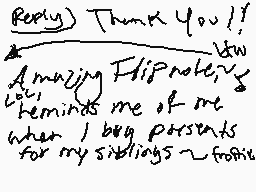 Reply) Thank you!!
btw
Amazing Flipnote,~
LOL, reminds me of me
when I buy presents
for my siblings ~ frostie